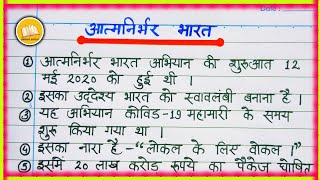 Date :
आत्मनिर्भर भारत
① आत्मनिर्भर भारत अभियान की शुरुआत 12
मई 2020 को हुई थी ।
② इसका उद्देश्य भारत को स्वावलंबी बनाना है ।
③ यह अभियान कोविड-19 महामारी के समय
शुरू किया गया था ।
④ इसका नारा है -"लोकल के लिए वोकल ।"
⑤ इसमें 20 लाख करोड़ रुपये का पैकेज घोषित